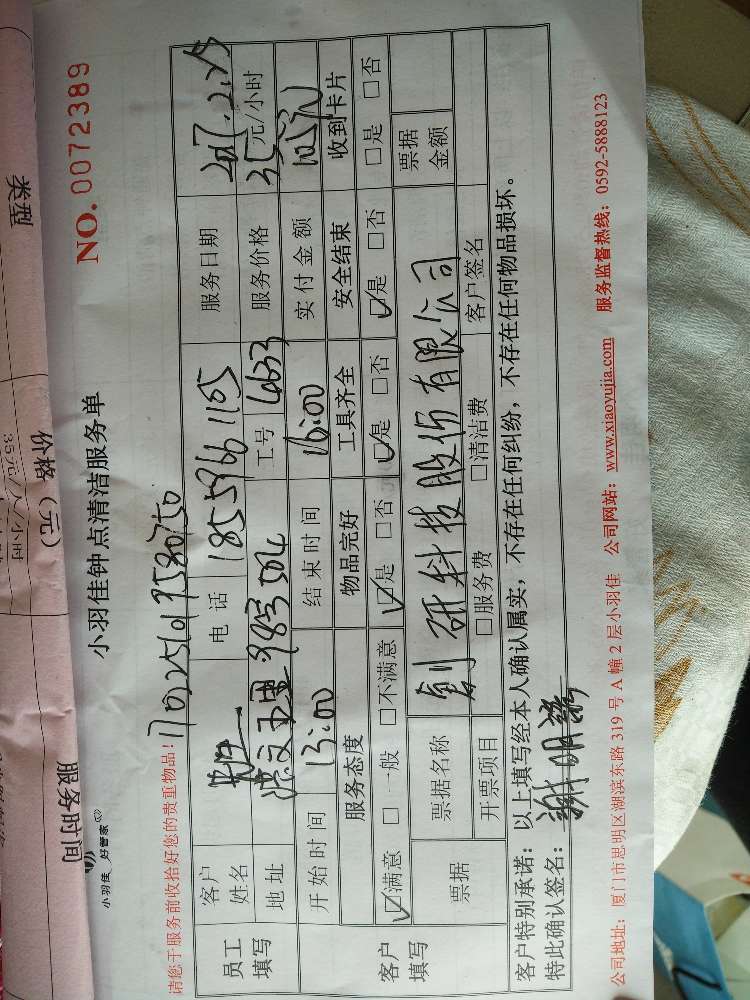 类型
价格（元）
35元/人/小时
服务时间
小羽佳 好管家
小羽佳钟点清洁服务单
NO. 0072389
请您于服务前收拾好您的贵重物品！
员工填写
客户姓名
电话 18559661105
服务日期
地址
工号
服务价格 35元/小时
开始时间 13:00
结束时间 16:00
实付金额 105元
客户填写
服务态度 物品完好 工具齐全 安全结束 收到卡片
☑满意 □一般 □不满意 ☑是 □否 ☑是 □否 ☑是 □否 □是 □否
票据 票据名称 科技股份有限公司 票据金额
开票项目 □服务费 □清洁费 客户签名
客户特别承诺：以上填写经本人确认属实，不存在任何纠纷，不存在任何物品损坏。
特此确认签名：
公司地址：厦门市思明区湖滨东路 319 号 A 幢 2 层小羽佳 公司网站：www.xiaoyujia.com 服务监督热线：0592-5888123